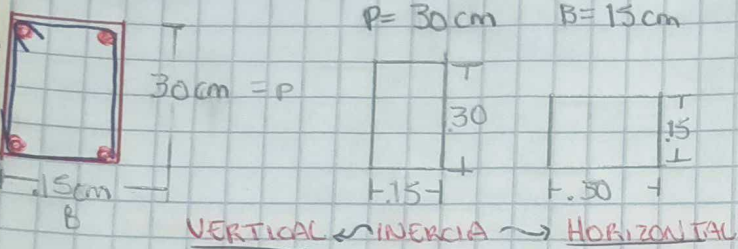 P= 30cm B= 15cm
30cm = P
.30
.15
.15cm
B
.15
.30
VERTICAL ← INERCIA → HORIZONTAL